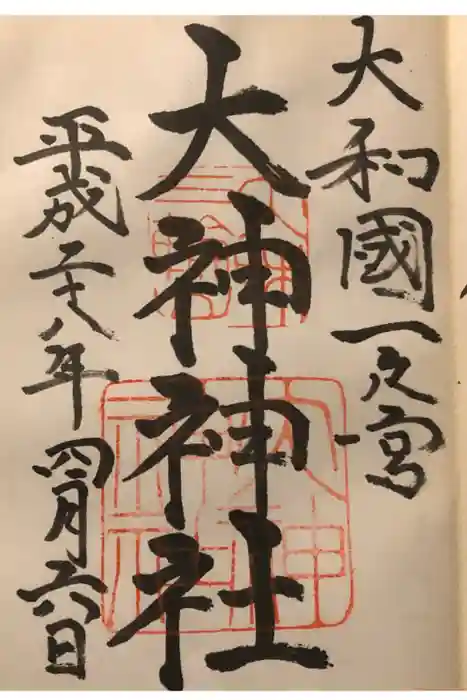 大和國一之宮
大神神社
平成二十八年四月六日